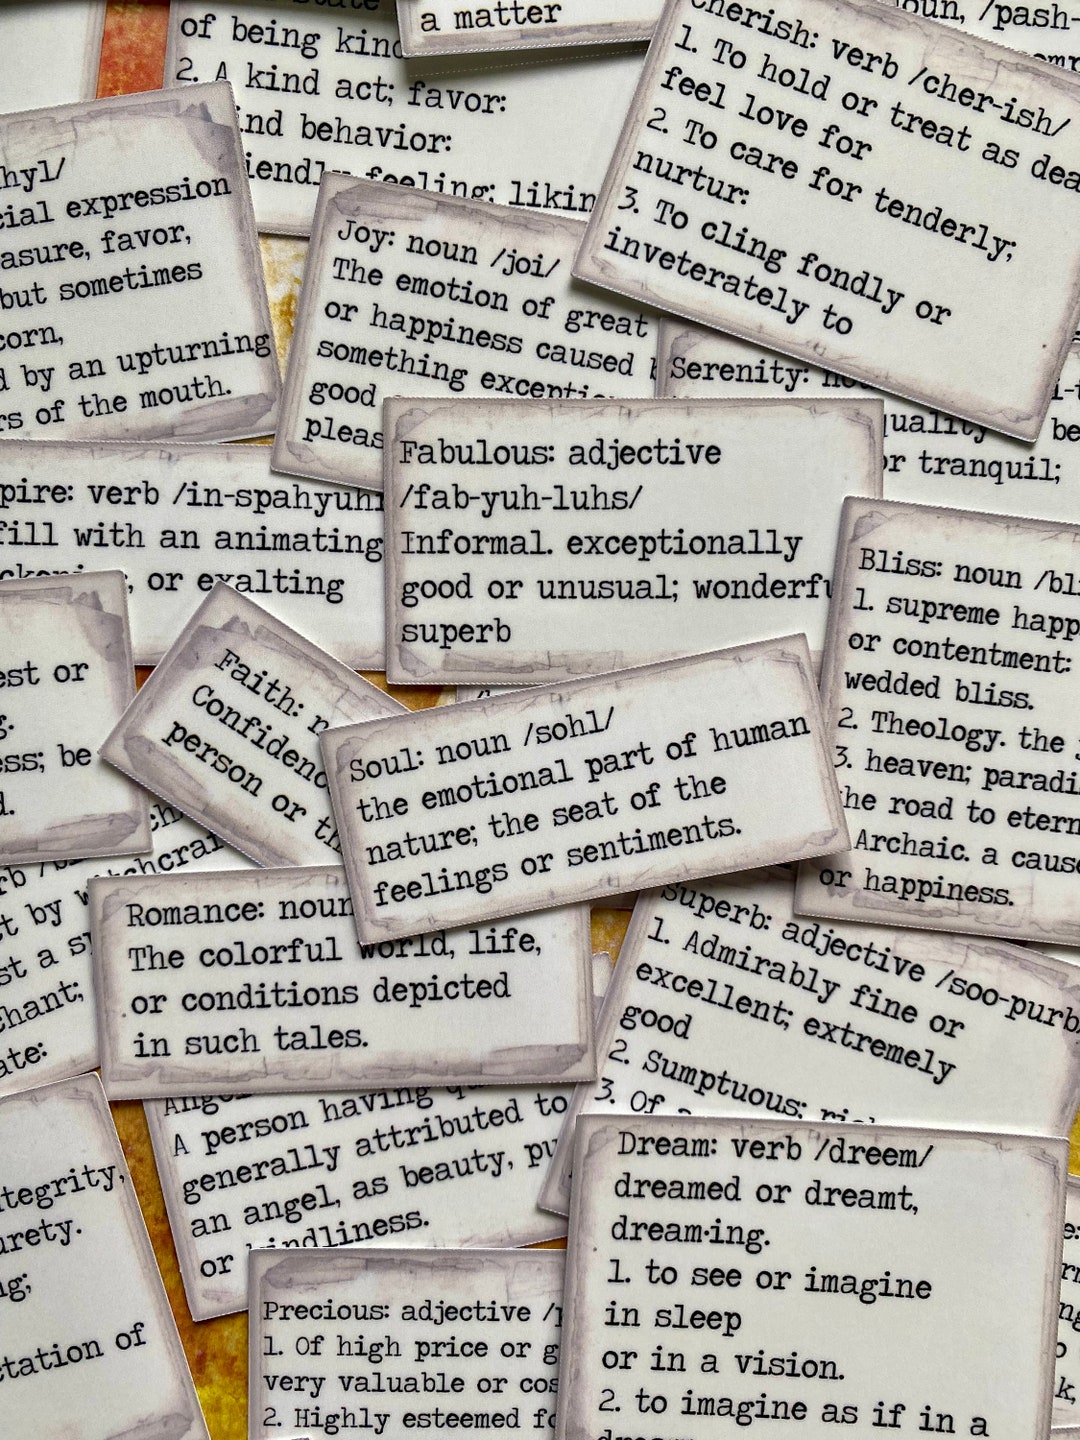 a matter
of being kind
2. A kind act; favor:
kind behavior:
friendly feeling; liking
Cherish: verb /cher-ish/
1. To hold or treat as dear
feel love for
2. To care for tenderly;
nurtur:
3. To cling fondly or
inveterately to
noun, /pash-
hyl/
cial expression
asure, favor,
but sometimes
corn,
d by an upturning
rs of the mouth.
Joy: noun /joi/
The emotion of great
or happiness caused
something
good
Serenity:
or tranquil;
Fabulous: adjective
/fab-yuh-luhs/
Informal. exceptionally
good or unusual; wonderfu
superb
pire: verb /in-spahyuhr
fill with an animating
or exalting
Bliss: noun /bli
1. supreme happ
or contentment:
wedded bliss.
2. Theology. the
3. heaven; paradi
the road to etern
Archaic. a cause
or happiness.
est or
g.
ess; be
d.
Faith:
Confidenc
person or
Soul: noun /sohl/
the emotional part of human
nature; the seat of the
feelings or sentiments.
by witchcraf
st a
chant;
ate:
Romance: noun
The colorful world, life,
or conditions depicted
in such tales.
Superb: adjective /soo-purb
1. Admirably fine or
excellent; extremely
good
2. Sumptuous;
3. Of
A person having
generally attributed to
an angel, as beauty, pu
or kindliness.
tegrity,
urety.
ng;
ctation of
Precious: adjective /p
1. Of high price or g
very valuable or cos
2. Highly esteemed fo
Dream: verb /dreem/
dreamed or dreamt,
dream·ing.
1. to see or imagine
in sleep
or in a vision.
2. to imagine as if in a